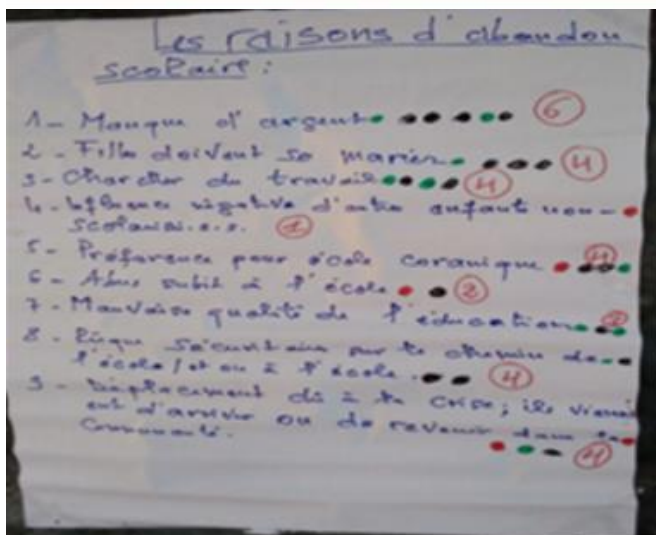 Les raisons d'abandon
scolaire :
1- Manque d'argent 6
2- Fille doivent se marier 4
3- Chercher du travail 4
4- Influence négative d'autre enfant non-
scolarisé.e.s. 1
5- Préférence pour école coranique 4
6- Abus subit à l'école 2
7- Mauvaise qualité de l'éducation
8- Risque sécuritaire sur le chemin de
l'école / et ou à l'école. 4
9- Déplacement dû à la crise; ils
d'arriver ou de revenir dans
communauté. 4